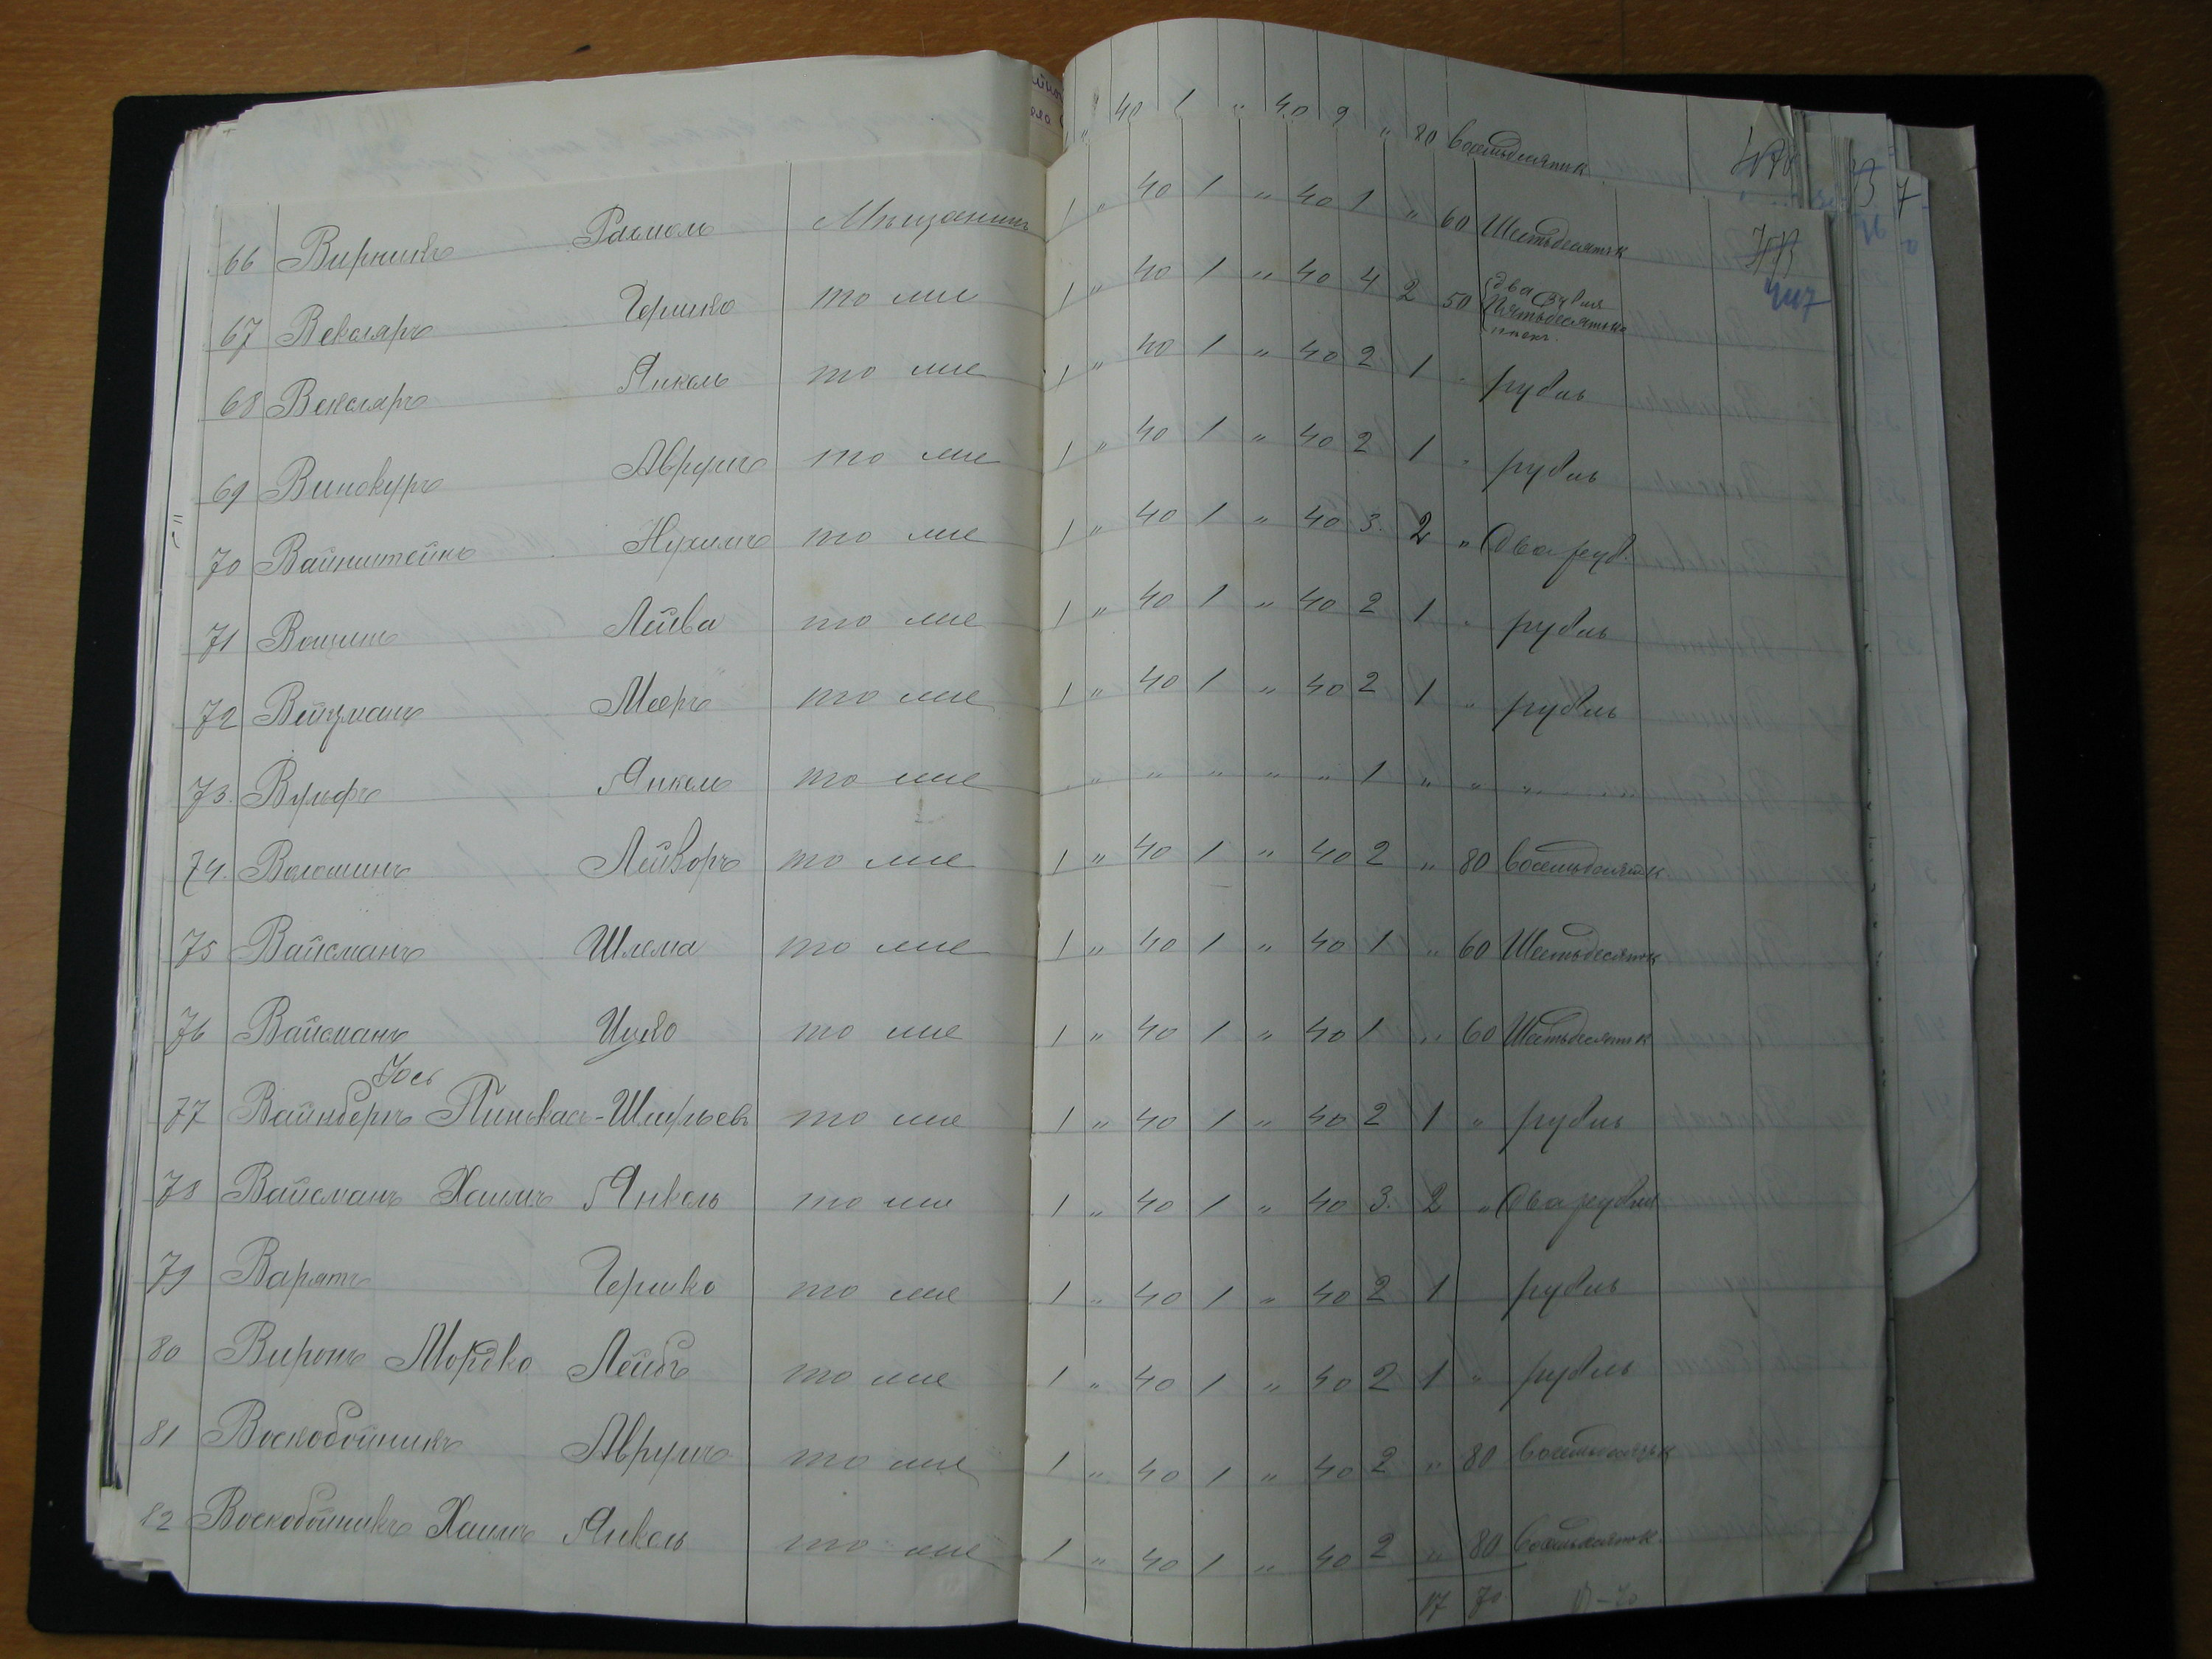 " 40 1 " 40 2 " 80 восемьдесят к
66 Вирникъ Рахмель Мѣщанинъ 1 " 40 1 " 40 1 " 60 Шестьдесят к
67 Векслеръ Гершко то же 1 " 40 1 " 40 4 2 50 два рубля Пятьдесят коп.
447
68 Векслеръ Янкель то же 1 " 40 1 " 40 2 1 " рубль
69 Винокуръ Аврумъ то же 1 " 40 1 " 40 2 1 " рубль
70 Вайнштейнъ Нухимъ то же 1 " 40 1 " 40 3 2 " Два руб.
71 Лейва то же 1 " 40 1 " 40 2 1 " рубль
72 Вейцманъ Мееръ то же 1 " 40 1 " 40 2 1 " рубль
73. Вульфъ Янкель то же " " " " " 1 " " "
74. Волошинъ Лейзоръ то же 1 " 40 1 " 40 2 " 80 восемьдесят к
75 Вайсманъ Шлема то же 1 " 40 1 " 40 1 " 60 Шестьдесят к
76 Вайсманъ Ицко то же 1 " 40 1 " 40 1 " 60 Шестьдесят к
Іось
77 Вайнбергъ Пинькас-Шмульевъ то же 1 " 40 1 " 40 2 1 " рубль
78 Вайсманъ Хаимъ Янкель то же 1 " 40 1 " 40 3. 2 " Два рубля
79 Варатъ Гершко то же 1 " 40 1 " 40 2 1 рубль
80 Виронъ Мордко Лейбъ то же 1 " 40 1 " 40 2 1 " рубль
81 Воскобойникъ Аврумъ то же 1 " 40 1 " 40 2 " 80 восемьдесят к
82 Воскобойникъ Хаимъ Янкель то же 1 " 40 1 " 40 2 " 80 восемьдесят к.
17 70 17-70